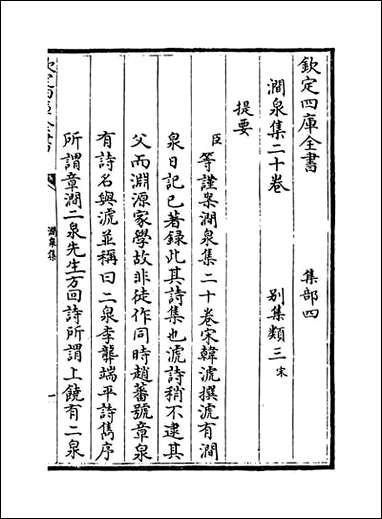 欽定四庫全書　集部四
澗泉集二十卷　別集類三宋
提要
臣等謹案澗泉集二十卷宋韓淲撰淲有澗
泉日記已著録此其詩集也淲詩稍不逮其
父而淵源家學故非徒作同時趙蕃號章泉
有詩名與淲並稱曰二泉李龏端平詩雋序
所謂章澗二泉先生方回詩所謂上饒有二泉
欽定四庫全書
澗泉集
一